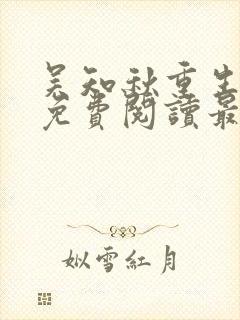 吴知秋重生
免費閱讀最
姒雪紅月